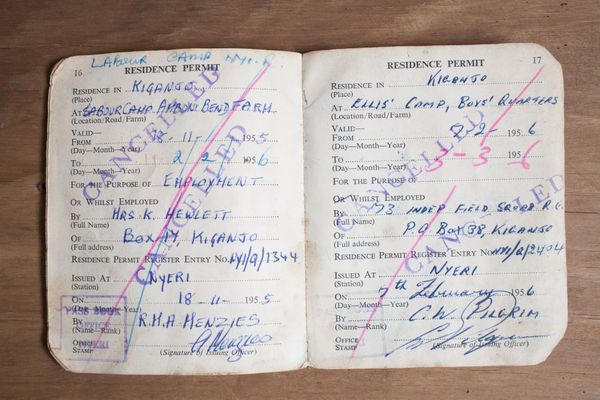 Labour Camp NYI. R.
16
RESIDENCE PERMIT
RESIDENCE IN KIGANJO
(Place)
AT LABOUR CAMP, AMBONI BEND FARM
(Location/Road/Farm)
VALID—
FROM 8-11- 1955
(Day—Month—Year)
TO 2 2 1956
(Day—Month—Year)
FOR THE PURPOSE OF EMPLOYMENT
OR WHILST EMPLOYED
BY MRS. K. HEWLETT
(Full Name)
OF BOX 14, KIGANJO
(Full address)
RESIDENCE PERMIT REGISTER ENTRY NO. NYI/9/1344
ISSUED AT NYERI
(Station)
ON 18-11- 1955
(Day—Month—Year)
BY R.H.A MENZIES
(Name—Rank)
OFFICE
STAMP
(Signature of Issuing Officer)
CANCELLED
CANCELLED
PASS BOOK
OFFICE
NYERI
17
RESIDENCE PERMIT
RESIDENCE IN KIGANJO
(Place)
AT ELLIS' CAMP, BOYS' QUARTERS
(Location/Road/Farm)
VALID—
FROM 2-2- 1956
(Day—Month—Year)
TO 5-3 1956
(Day—Month—Year)
FOR THE PURPOSE OF
OR WHILST EMPLOYED
BY 73 INDEP FIELD SQUAD R.E.
(Full Name)
OF P.O BOX 38, KIGANJO
(Full address)
RESIDENCE PERMIT REGISTER ENTRY NO. NYI/2/2404
ISSUED AT NYERI
(Station)
ON 7th February 1956
(Day—Month—Year)
BY C. W. PILGRIM
(Name—Rank)
OFFICE
STAMP
(Signature of Issuing Officer)
CANCELLED
CANCELLED